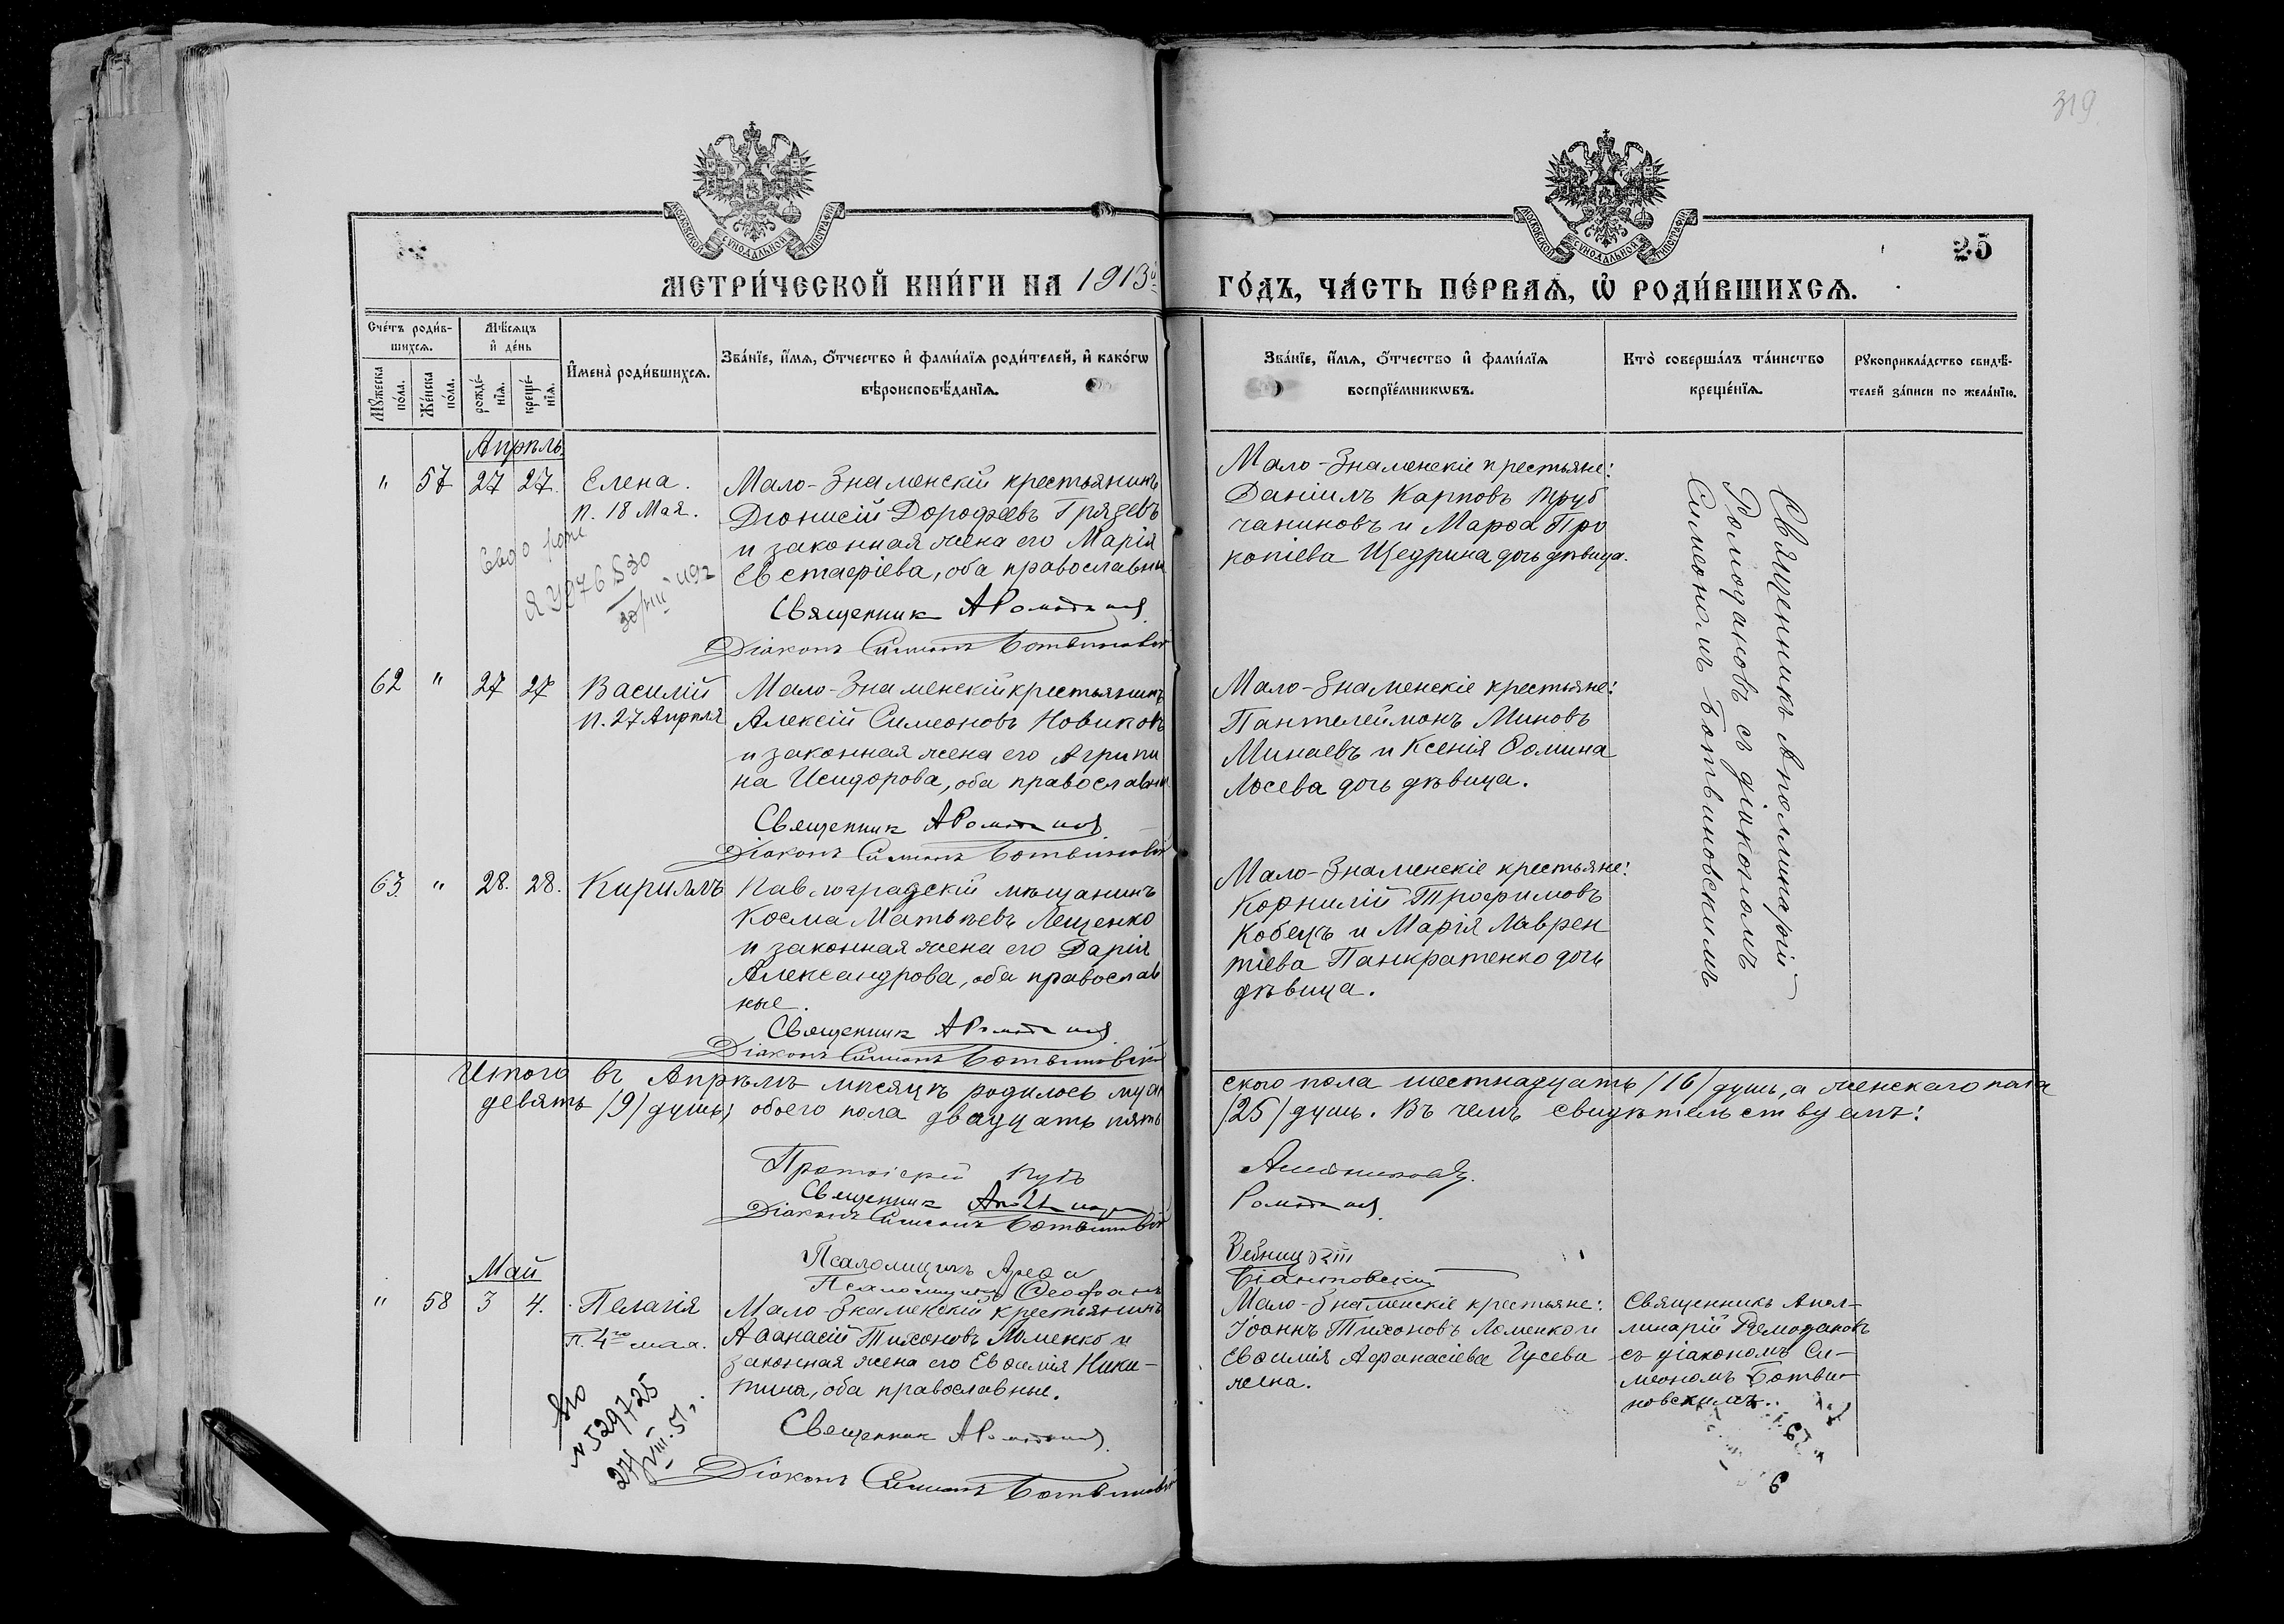 319
МОСКОВСКОЙ СѴНОДАЛЬНОЙ ТИПОГРАФІИ
МОСКОВСКОЙ СѴНОДАЛЬНОЙ ТИПОГРАФІИ
25
МЕТРИ́ЧЕСКОЙ КНИ́ГИ НА 1913й
ГО́ДЪ, ЧА́СТЬ ПЕ́РВАѦ, Ѽ РОДИ́ВШИХСѦ.
Сче́тъ роди́в-
шихсѧ.
Мꙋ́жеска по́ла.
Же́нска по́ла.
Мѣ́сѧцъ
и҆ де́нь
рожде́-
нїѧ.
креще́-
нїѧ.
И҆мена̀ роди́вшихсѧ.
Зва́нїе, и҆́мѧ, ѻ҆́тчество и҆ фами́лїѧ роди́телей, и҆ како́гѡ
вѣроисповѣ́данїѧ.
Зва́нїе, и҆́мѧ, ѻ҆́тчество и҆ фами́лїѧ
воспрїе́мникѡвъ.
Кто̀ соверша́лъ та́инство
креще́нїѧ.
Рꙋкоприкла́дство свидѣ́-
телей за́писи по жела́нїю.
Апрѣль
" 57 27 27.
Елена.
п. 18 Мая.
Мало-Знаменскій крестьянинъ
Діонисій Дорофеевъ Грязевъ
и законная жена его Марія
Евстафіева, оба православны
Священник АРомоданов
Діаконъ Симеонъ Ботвиновскій
Мало-Знаменскіе крестьяне:
Даніилъ Карповъ Труб
чаниновъ и Марѳа Про
копіева Щедрина дочь дѣвица.
Священникъ Аполинарій
Ромодановъ съ діакономъ
Симеономъ Ботвиновскимъ
62 " 27 27
Василій
п. 27 Апрѣля
Мало-Знаменскій крестьянинъ
Алексій Симеоновъ Новиковъ
и законная жена его Агрипи
на Исидорова, оба православны
Священник АРомоданов
Діаконъ Симеонъ Ботвиновскій
Мало-Знаменскіе крестьяне:
Пантелеймонъ Миновъ
Минаевъ и Ксенія Ѳомина
Лосева дочь дѣвица.
63. " 28. 28.
Кириллъ
Павлоградскій мѣщанинъ
Косма Матѳѣевъ Лещенко
и законная жена его Дарія
Александрова, оба православ
ные.
Священник АРомоданов
Діаконъ Симеонъ Ботвиновскій
Мало-Знаменскіе крестьяне:
Корнилій Трофимовъ
Кобецъ и Марія Лаврен
тіева Панкратенко дочь
дѣвица.
Итого въ Апрѣлѣ мѣсяцѣ родилось муж
ского пола шестнадцать /16/ душъ, а женскаго пола
девять /9/ душъ; обоего пола двадцать пять
/25/ душъ. Въ чемъ свидѣтельствуемъ:
Протоіерей
Священник
Ромоданов
Діаконъ Симеонъ Ботвиновскій
Псаломщикъ
Псаломщикъ Ѳеофанъ
Май
" 58 3 4.
Пелагія
п. 4го мая.
Мало-Знаменскій крестьянинъ
Аѳанасій Тихоновъ Ломенко и
законная жена его Евѳимія Ники-
тина, оба православные.
Священник АРомоданов
Діаконъ Симеонъ Ботвиновскій
Мало-Знаменскіе крестьяне:
Іоаннъ Тихоновъ Ломенко и
Евѳимія Афанасіева Гусева
жена.
Священникъ Апол-
линарій Ромодановъ
съ діакономъ Си-
меономъ Ботви-
новскимъ.
№ 529725
27/VIII.51